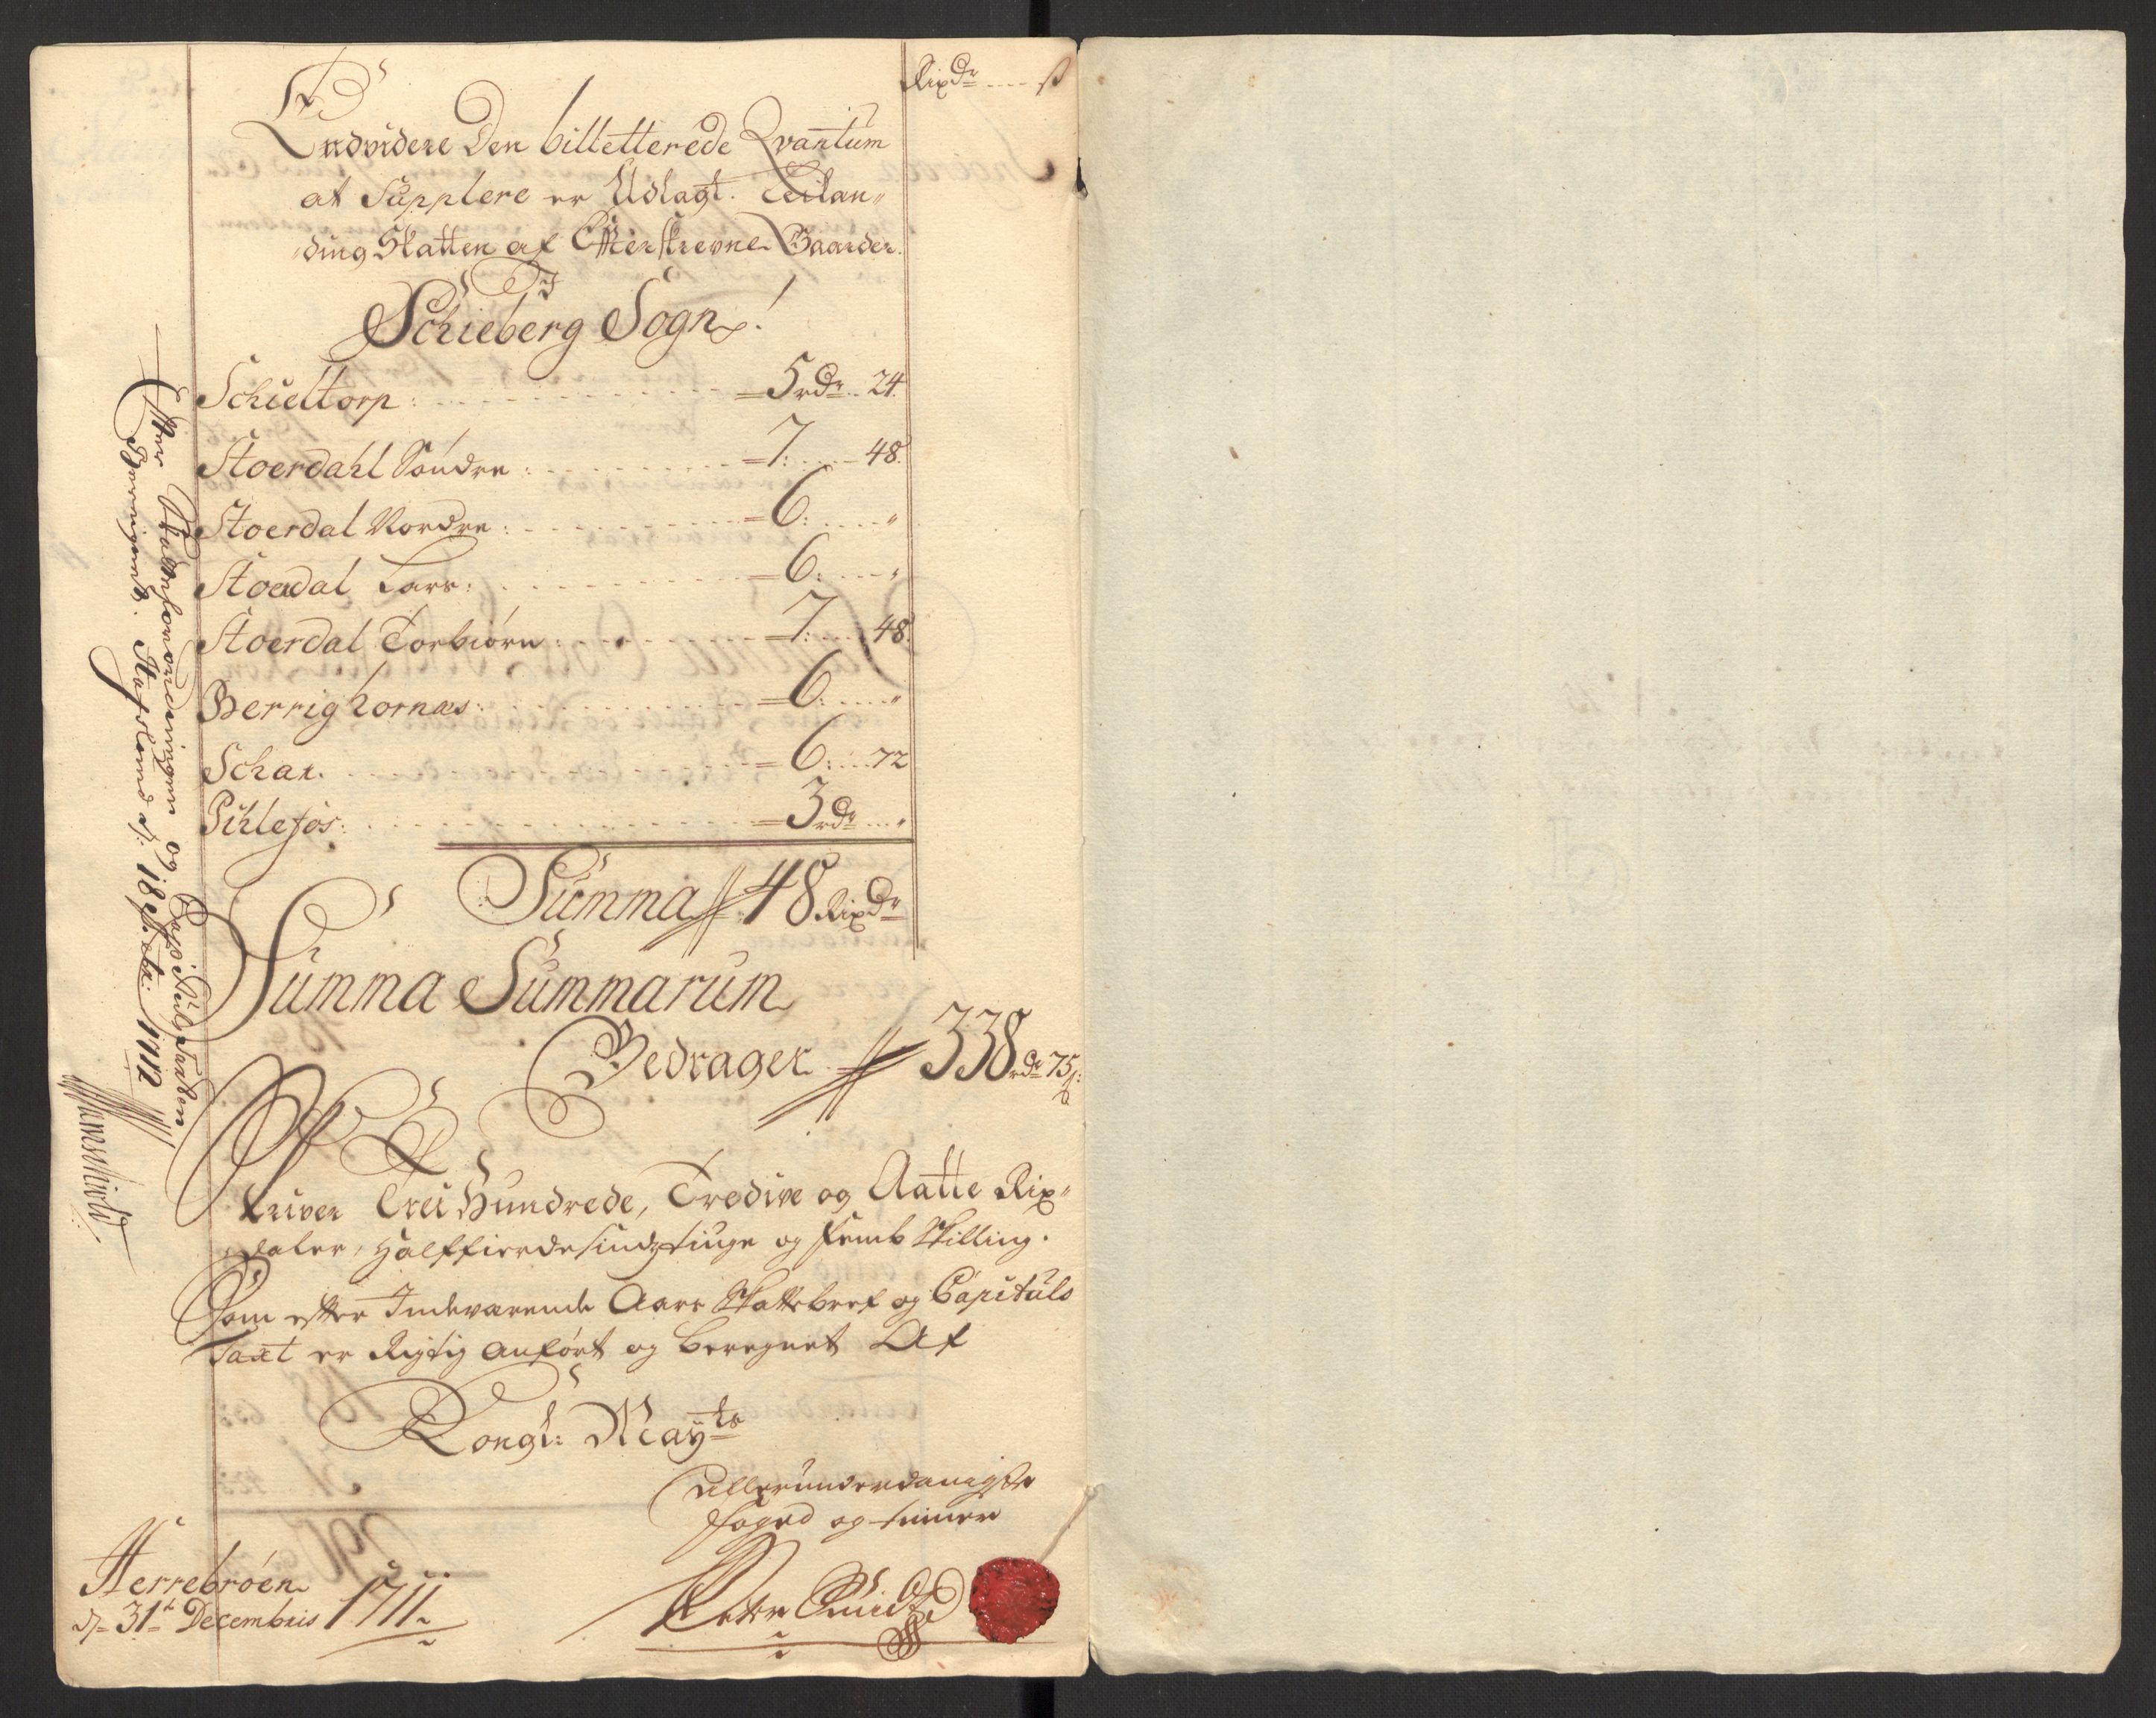 Rixdr ---- ß
Endvidere Den billetterede Qvantum
at Supplere er Udlagt. Leilan„
„ding Skatten af Efterskrevne Gaarder.
I
Schieberg Sogn.!
Schieltorp: = 5 rdr .. 24.
Stoerdahl Søndre: = 7: --- 48.
Stoerdal Nordre: = 6: --- „
Stoerdal Lars: = 6: --- „
Stoerdal Torbiørn: = 7: --- 48.
Berrig hornæs: = 6: --- „
Schar. = 6: --- 72
Pihlefos: = 3 rdr --- „
Summa 48 Rixdr
Summa Summarum
Bedrager 338 rdr 75 ß:
Skriver Trei Hundrede, Tredive og Aatte Rix„
„daler, halffierdesindztiuge og femb Skilling.
Som efter Indeværende Aars Skattebref og Capituls
Taxt er Rigtig anført og beregnet Af
Kongl: Mayts
allerunderdanigste
foged og tienner
Peter Smidt
Herrebrøen
d 31te Decembris 1711.
Efter og Capituls taxten
1712